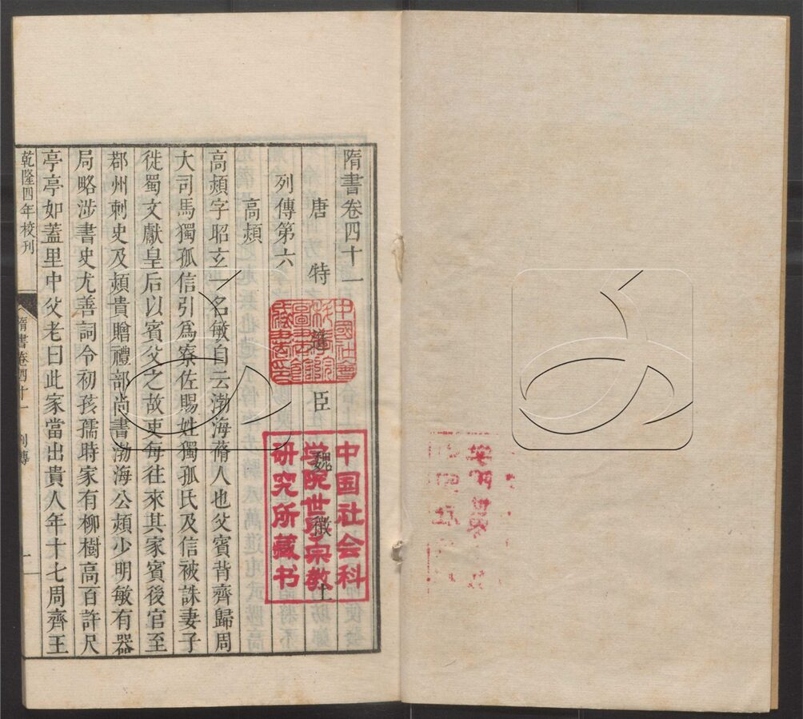 隋書卷四十一
唐特進臣魏徵上
列傳第六
高熲
高熲字昭玄一名敏自云渤海蓨人也父賓背齊歸周
大司馬獨孤信引為寮佐賜姓獨孤氏及信被誅妻子
徙蜀文獻皇后以賓父之故吏每往來其家賓後官至
鄀州刺史及熲貴贈禮部尚書渤海公熲少明敏有器
局略涉書史尤善詞令初孩孺時家有柳樹高百許尺
亭亭如蓋里中父老曰此家當出貴人年十七周齊王
乾隆四年校刊
隋書卷四十一
列傳
一
中國社會
科學院
圖書館
藏書印
中国社会科
学院世界宗教
研究所藏书